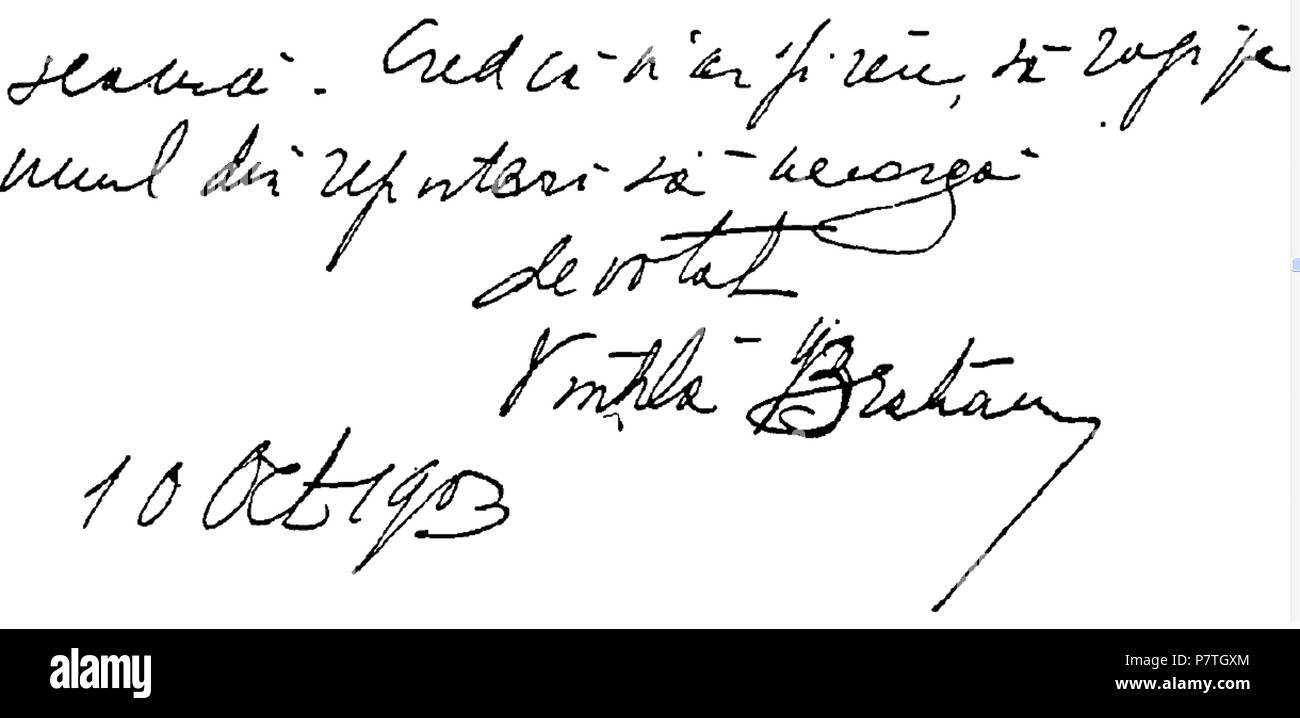 seamă. Cred că n'ar fi rĕu, să rogi pe
unul din reporteri să meargă
devotat
Vintilă Brătianu
10 Oct 1903
alamy
Image ID: P7TGXM
www.alamy.com